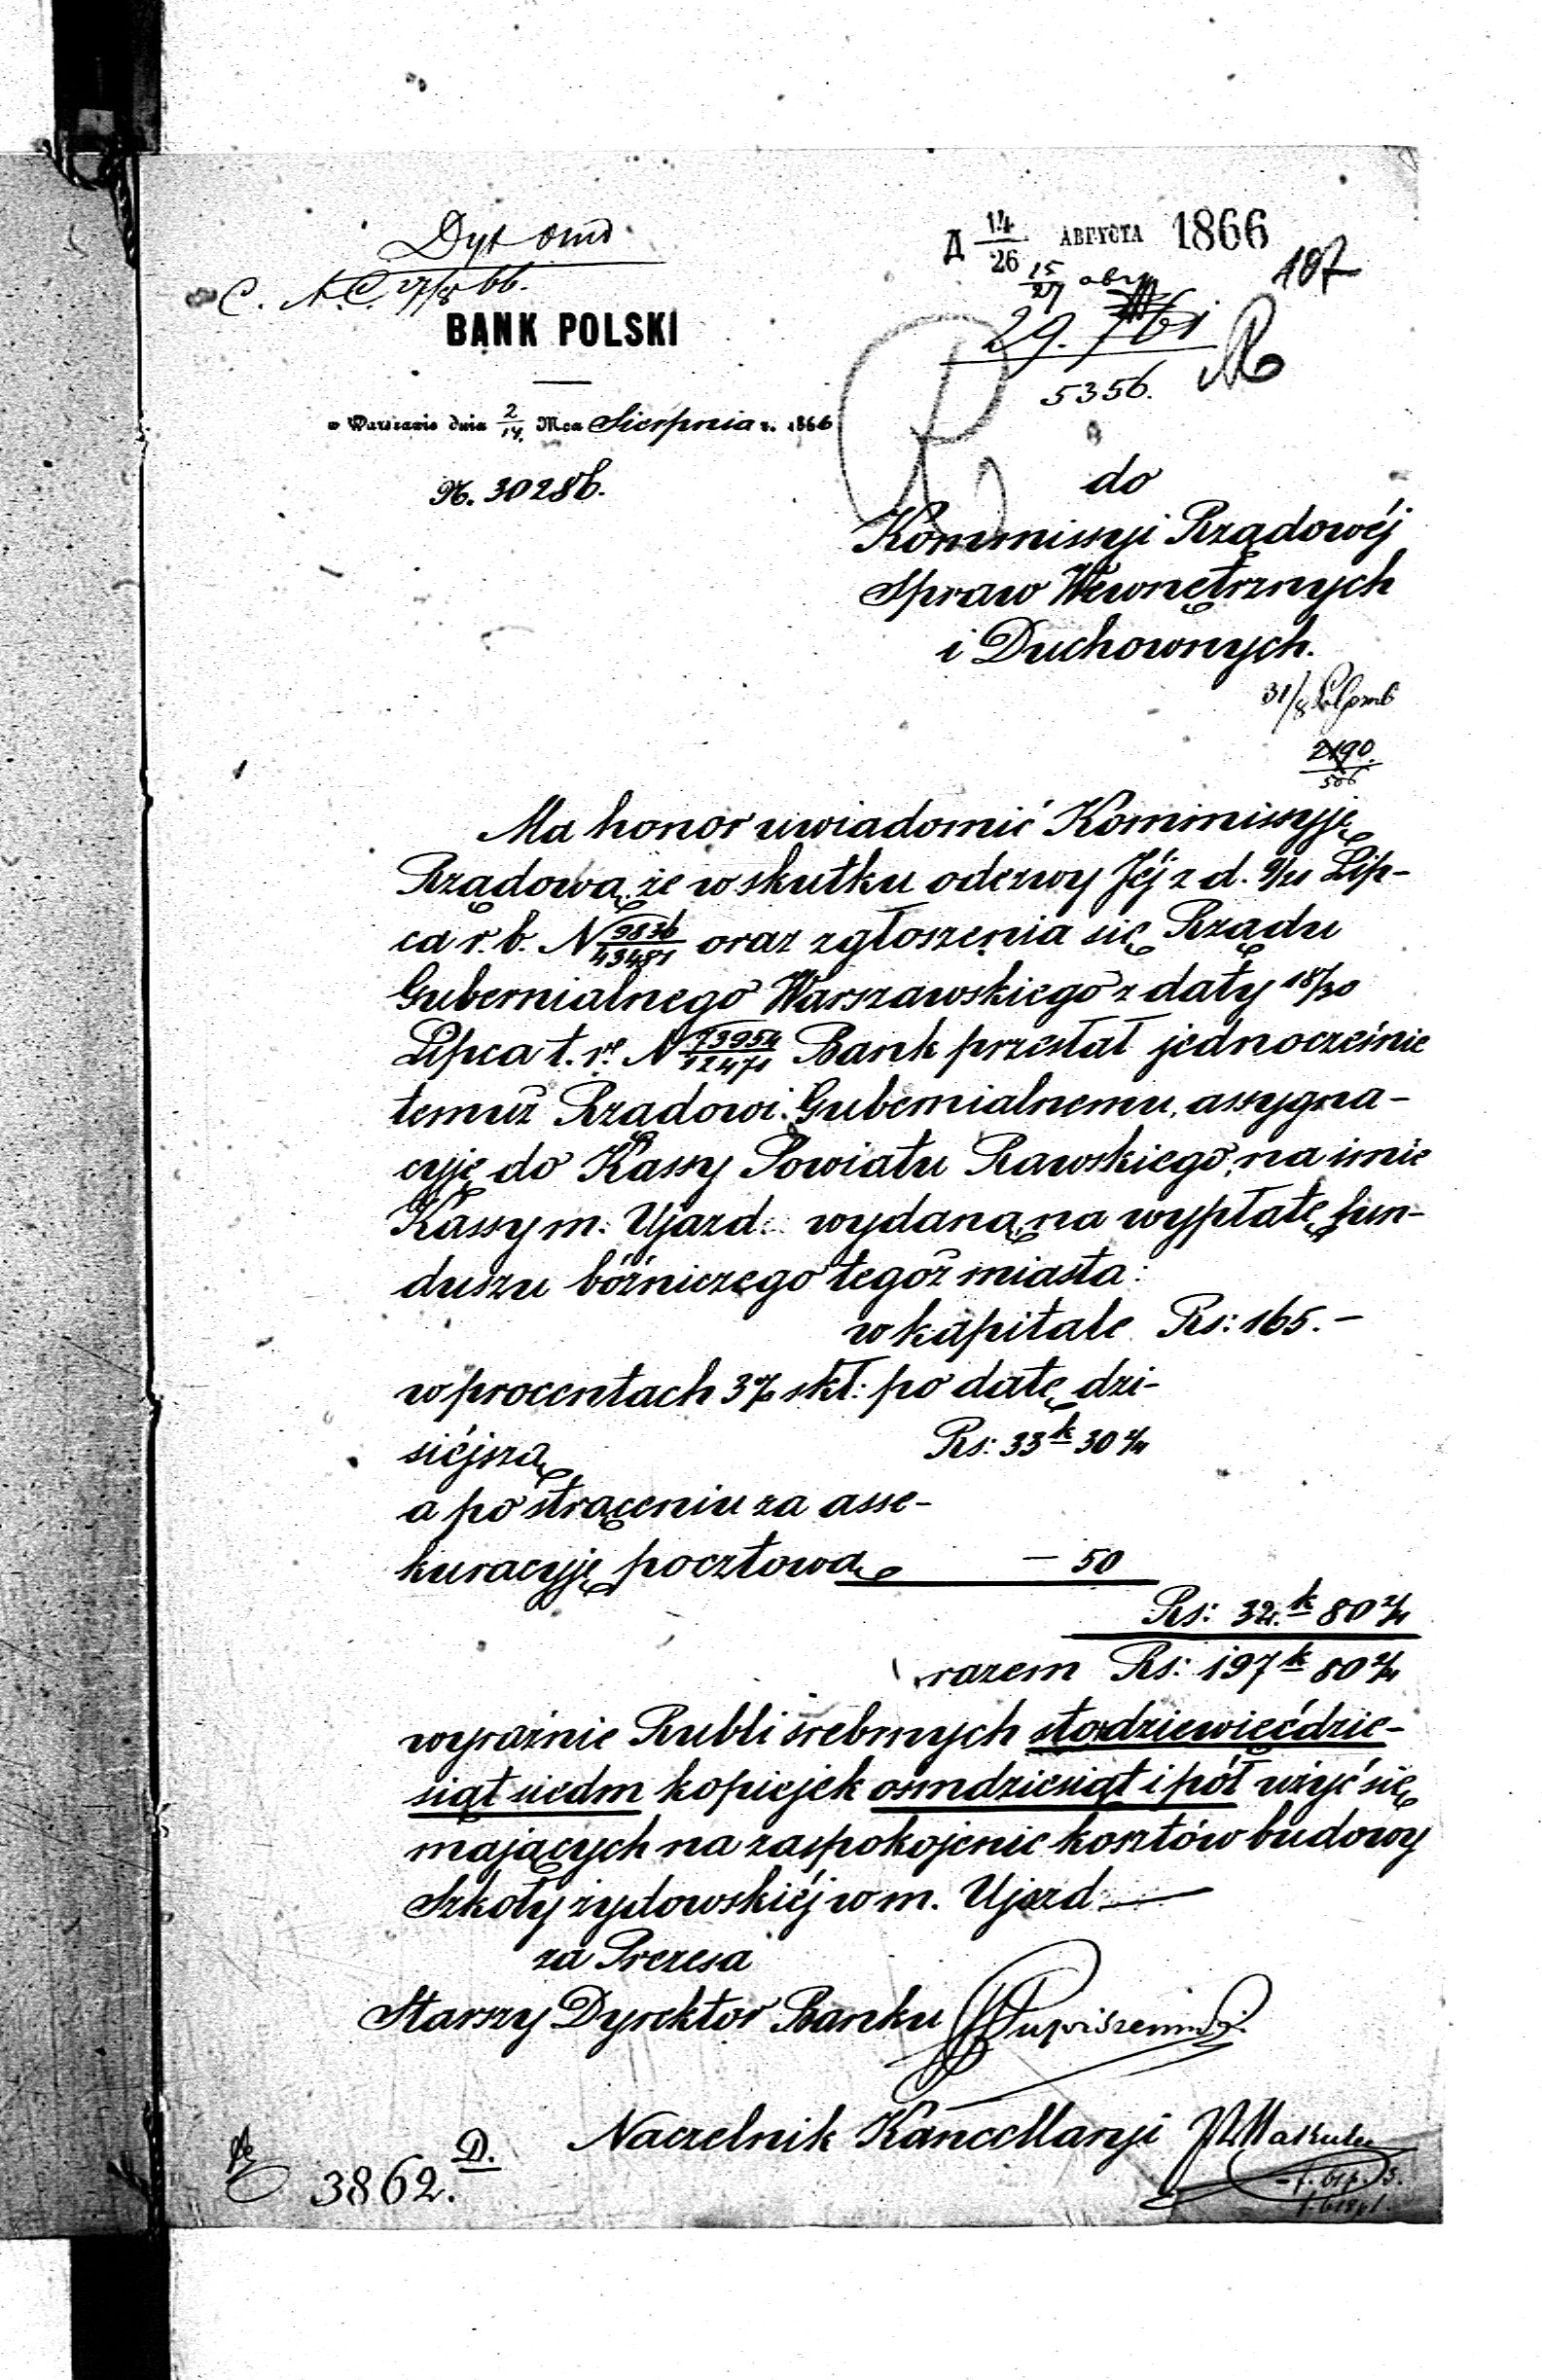 Dyt
C. N.C. 27/8 66.
BANK POLSKI
w Warszawie dnia 2/14 Mca Sierpnia r. 1866
N. 30286.
Д 14/26 АВГУСТА 1866
15/27 авг
187
29. 761
5356.
do
Kommissyi Rządowéj
Spraw Wewnętrznych
i Duchownych.
31/8
2190
506
Ma honor uwiadomić Kommissyję
Rządową, że w skutku odezwy Jéj z d. 9/21 Lip-
ca r. b. N 9836/43481 oraz zgłoszenia się Rządu
Gubernialnego Warszawskiego z daty 18/30
Lipca t. r. N 73954/12471 Bank przesłał jednocześnie
temuż Rządowi Gubernialnemu, assygna-
cyję do Kassy Powiatu Rawskiego, na imie
Kassy m. Ujazd: wydaną, na wypłatę fun-
duszu bóżniczego tegoż miasta:
w kapitale Rs: 165. —
w procentach 3% skł: po datę dzi-
siéjszą Rs: 33 k 30 2/4
a po strąceniu za asse-
kuracyję pocztową — 50
Rs: 32. k 80 2/4
razem Rs: 197 k 80 2/4
wyraźnie Rubli srebrnych stodziewięćdzie-
siąt siedm kopiejek osmdziesiąt i pół użyć się
mających na zaspokojenie kosztów budowy
Szkoły żydowskiéj w m. Ujazd —
za Prezesa
Starszy Dyrektor Banku
Naczelnik Kancellaryi
D.
3862.